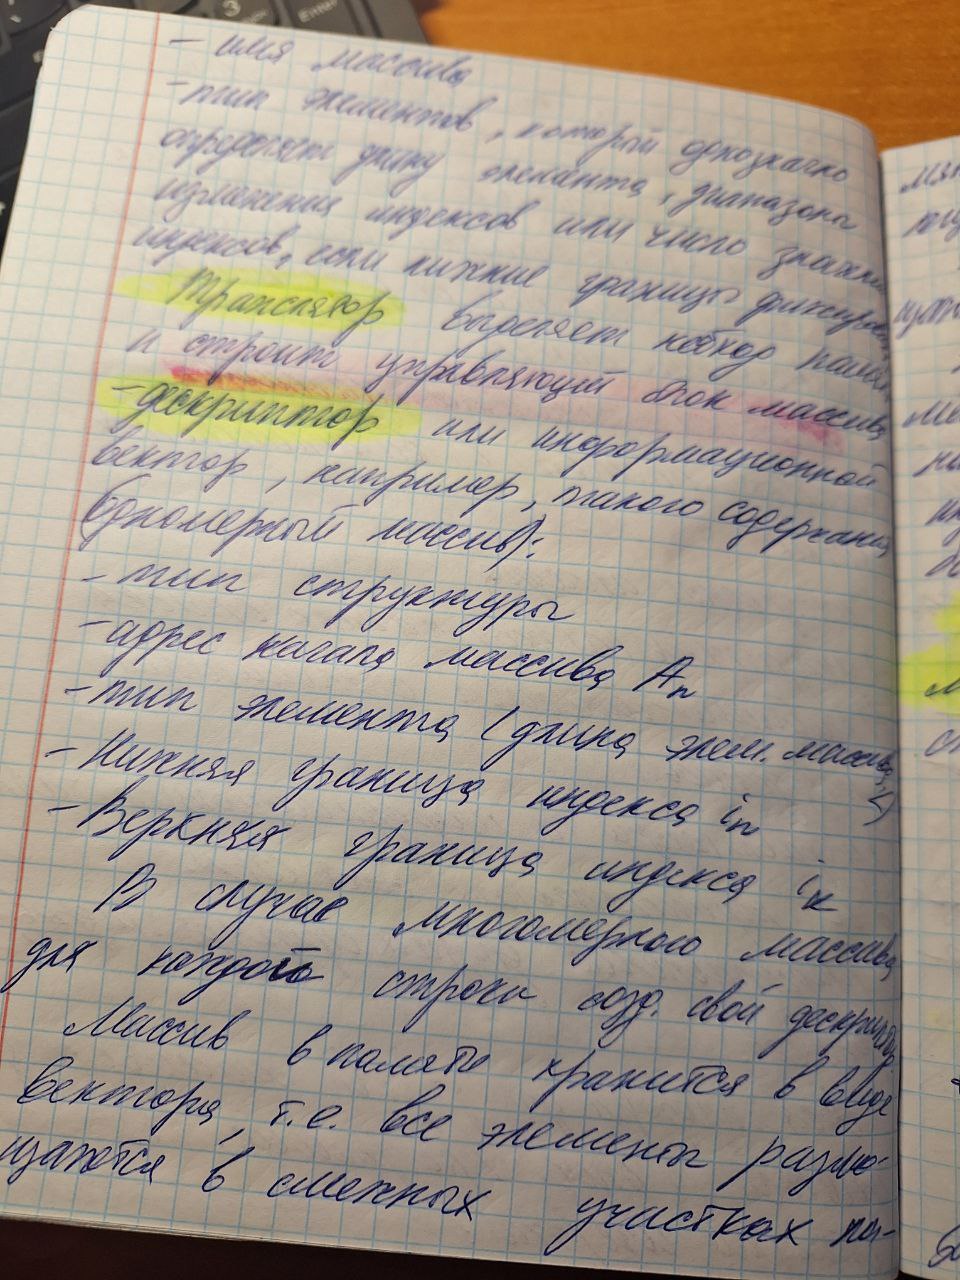 - имя массива
- тип элементов, который однозначно
определяет длину элемента, диапазона
изменения индексов или число значений
индексов, если нижние границы фиксиров
Транслятор выделяет набор памяти
и строит управляющий блок массива
- дескриптор или информационной
вектор, например, такого содержания
(одномерный массив):
- тип структуры
- адрес начала массива Aн
- тип элемента (длина элем. массива, L)
- Нижняя граница индекса iн
- Верхняя граница индекса iк
В случае многомерного массива
для каждого строки созд. свой дескриптор
Массив в памяти хранится в виде
вектора, т.е. все элементы разме-
щаются в смежных участках па-